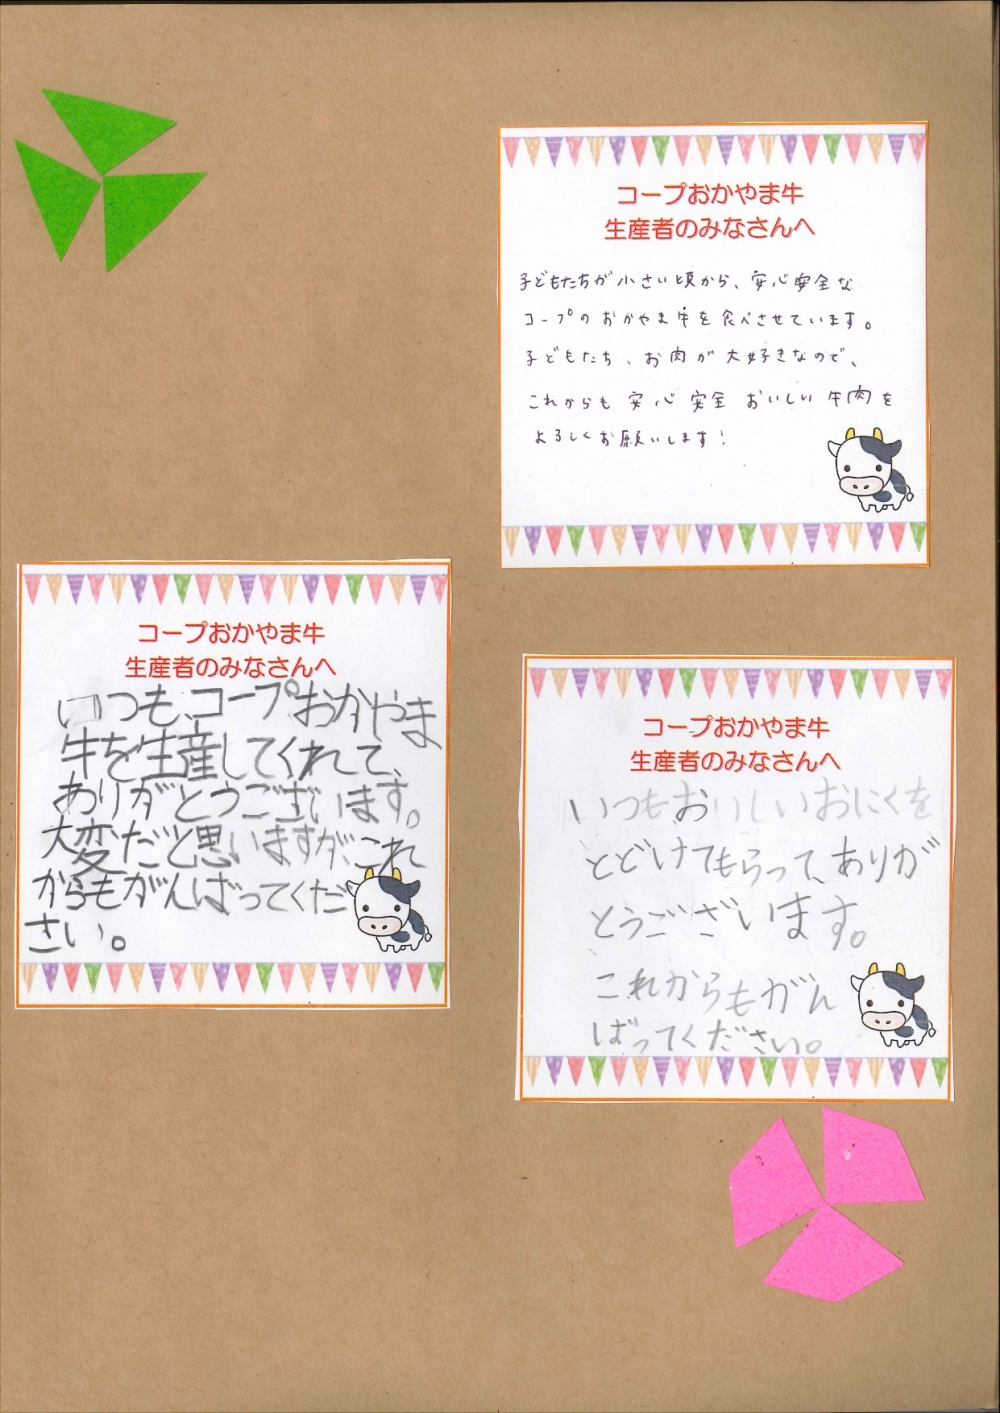 コープおかやま牛
生産者のみなさんへ
子どもたちが小さい頃から、安心安全な
コープのおかやま牛を食べさせています。
子どもたち、お肉が大好きなので、
これからも安心安全おいしい牛肉を
よろしくお願いします!
コープおかやま牛
生産者のみなさんへ
いつも、コープおかやま
牛を生産してくれて、
ありがとうございます。
大変だと思いますが、これ
からもがんばってくだ
さい。
コープおかやま牛
生産者のみなさんへ
いつもおいしいおにくを
とどけてもらって、ありが
とうございます。
これからもがん
ばってください。